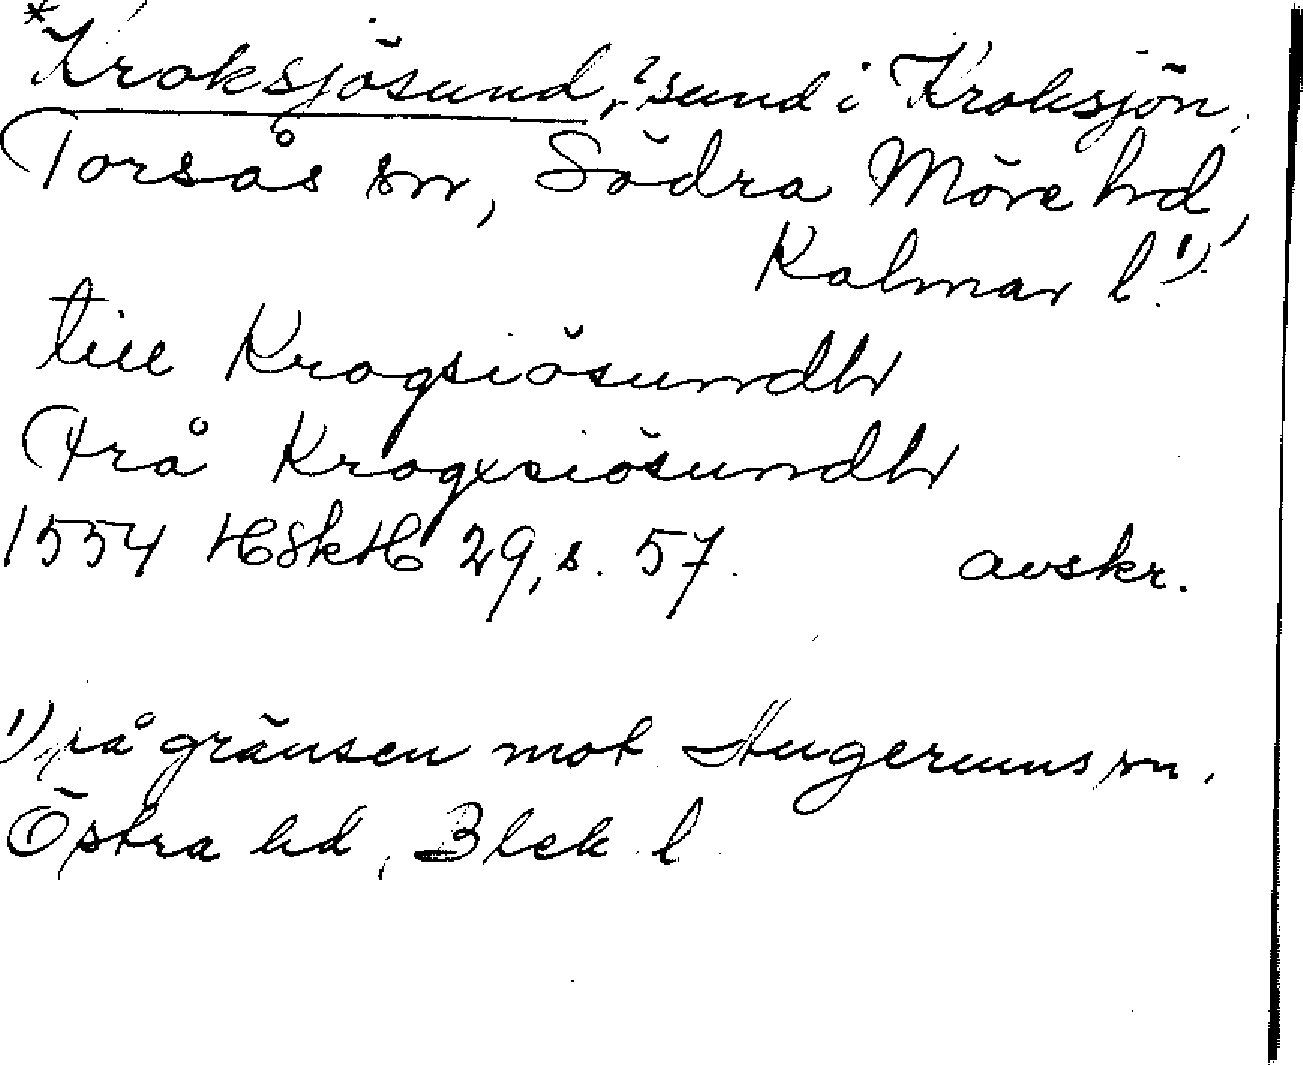 *Kroksjösund, ?sund i Kroksjön,
Torsås sn, Södra Möre hd,
Kalmar l.1)
till Krogsiösundh
Frå Krogxsiösundh
1554 HSkH 29, s. 57. avskr.
1) på gränsen mot Hugerums sn.
Östra hd, Blek l